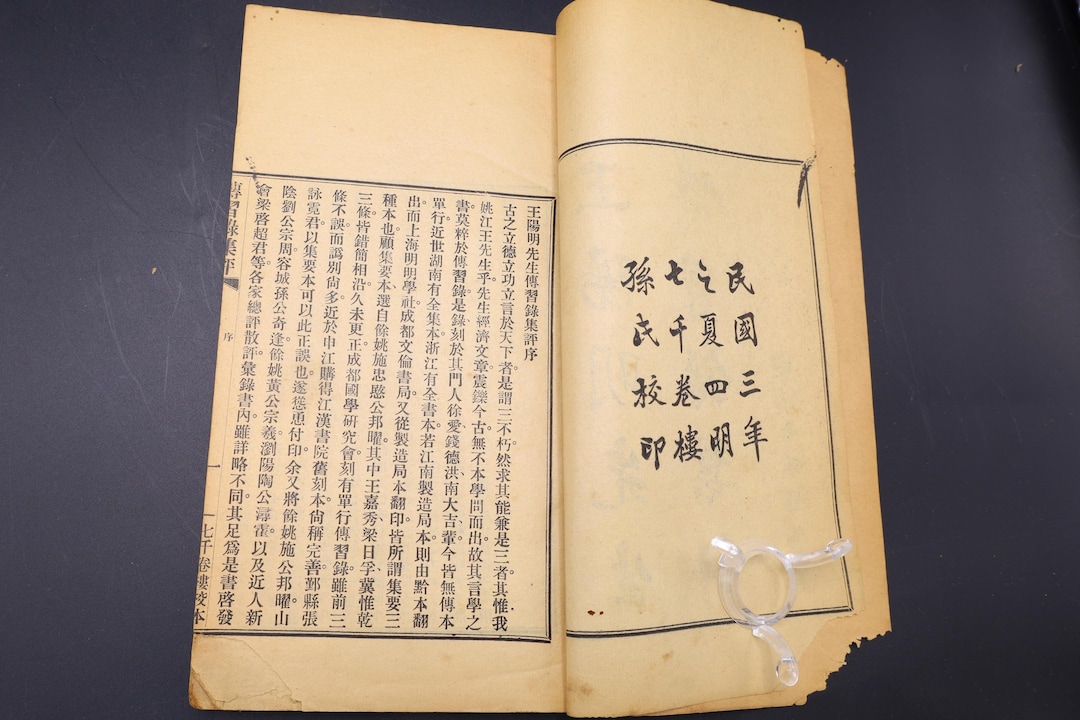 民國三年
之夏四明
七千卷樓
孫氏校印
王陽明先生傳習錄集評序
古之立德立功立言於天下者是謂三不朽然求其能兼是三者其惟我
姚江王先生乎先生經濟文章震鑠今古無不本學問而出故其言學之
書莫粹於傳習錄是錄刻於其門人徐愛錢德洪南大吉輩今皆無傳本
單行近世湖南有全集本浙江有全書本若江南製造局本則由黔本翻
出而上海明明學社成都文倫書局又從製造局本翻印皆所謂集要三
種本也顧集要本選自餘姚施忠愍公邦曜其中王嘉秀梁日孚冀惟乾
三條皆錯簡相沿久未更正成都國學研究會刻有單行傳習錄雖前三
條不誤而譌別尙多近於申江購得江漢書院舊刻本尙稱完善鄞縣張
詠霓君以集要本可以此正誤也遂慫恿付印余又將餘姚施公邦曜山
陰劉公宗周容城孫公奇逢餘姚黃公宗羲瀏陽陶公潯霍以及近人新
會梁啓超君等各家總評散評彙錄書內雖詳略不同其足爲是書啓發
傳習錄集評
序
一
七千卷樓校本